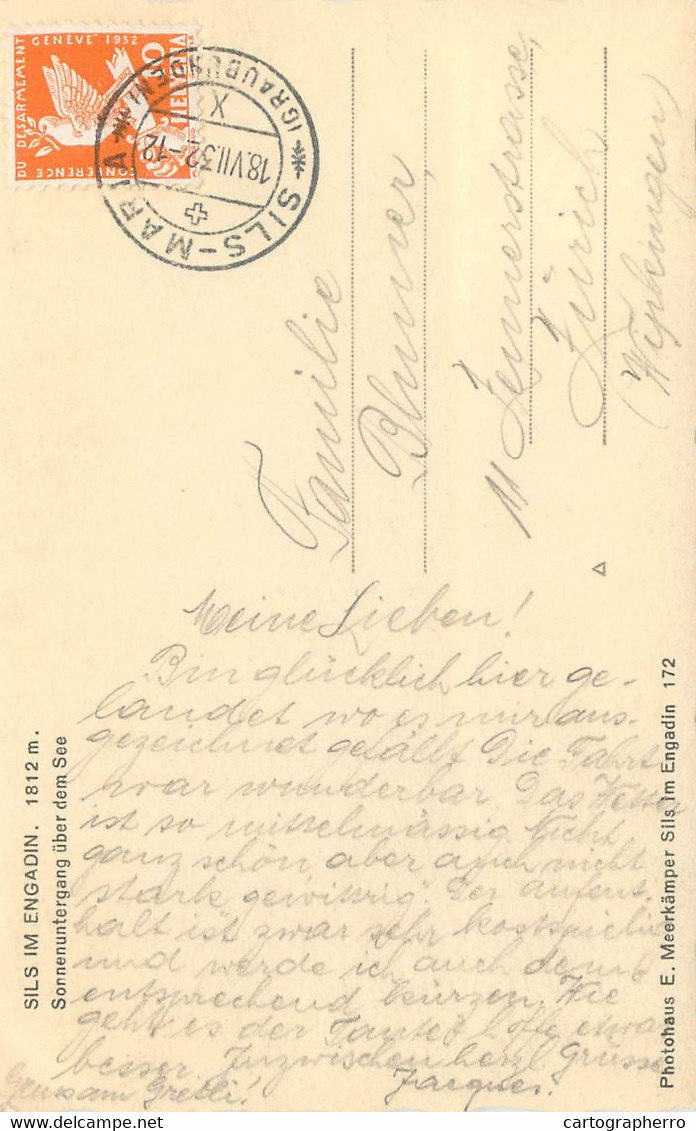 CONFERENCE
DU DESARMEMENT
GENÈVE 1932
HELVETIA
SILS-MARIA
(GRAUBÜNDEN)
X
18.VII.32-12
Familie
Blumer,
11 strasse,
Zürich
(Wipkingen)
Meine Lieben!
Bin glücklich hier ge-
landet wo es mir aus-
gezeichnet gefällt. Die Fahrt
war wunderbar. Das Wetter
ist so mittelmässig. Nicht
ganz schön, aber auch nicht
stark gewittrig. Der aufent-
halt ist zwar sehr kostspielig
und werde ich auch dem
entsprechend kürzen. Wie
geht es der Tante? hoffe etwas
besser. Inzwischen herzl. Grüsse
Jacques.
Gretli!
SILS IM ENGADIN. 1812 m.
Sonnenuntergang über dem See
Photohaus E. Meerkämper Sils im Engadin 172
cartographerro